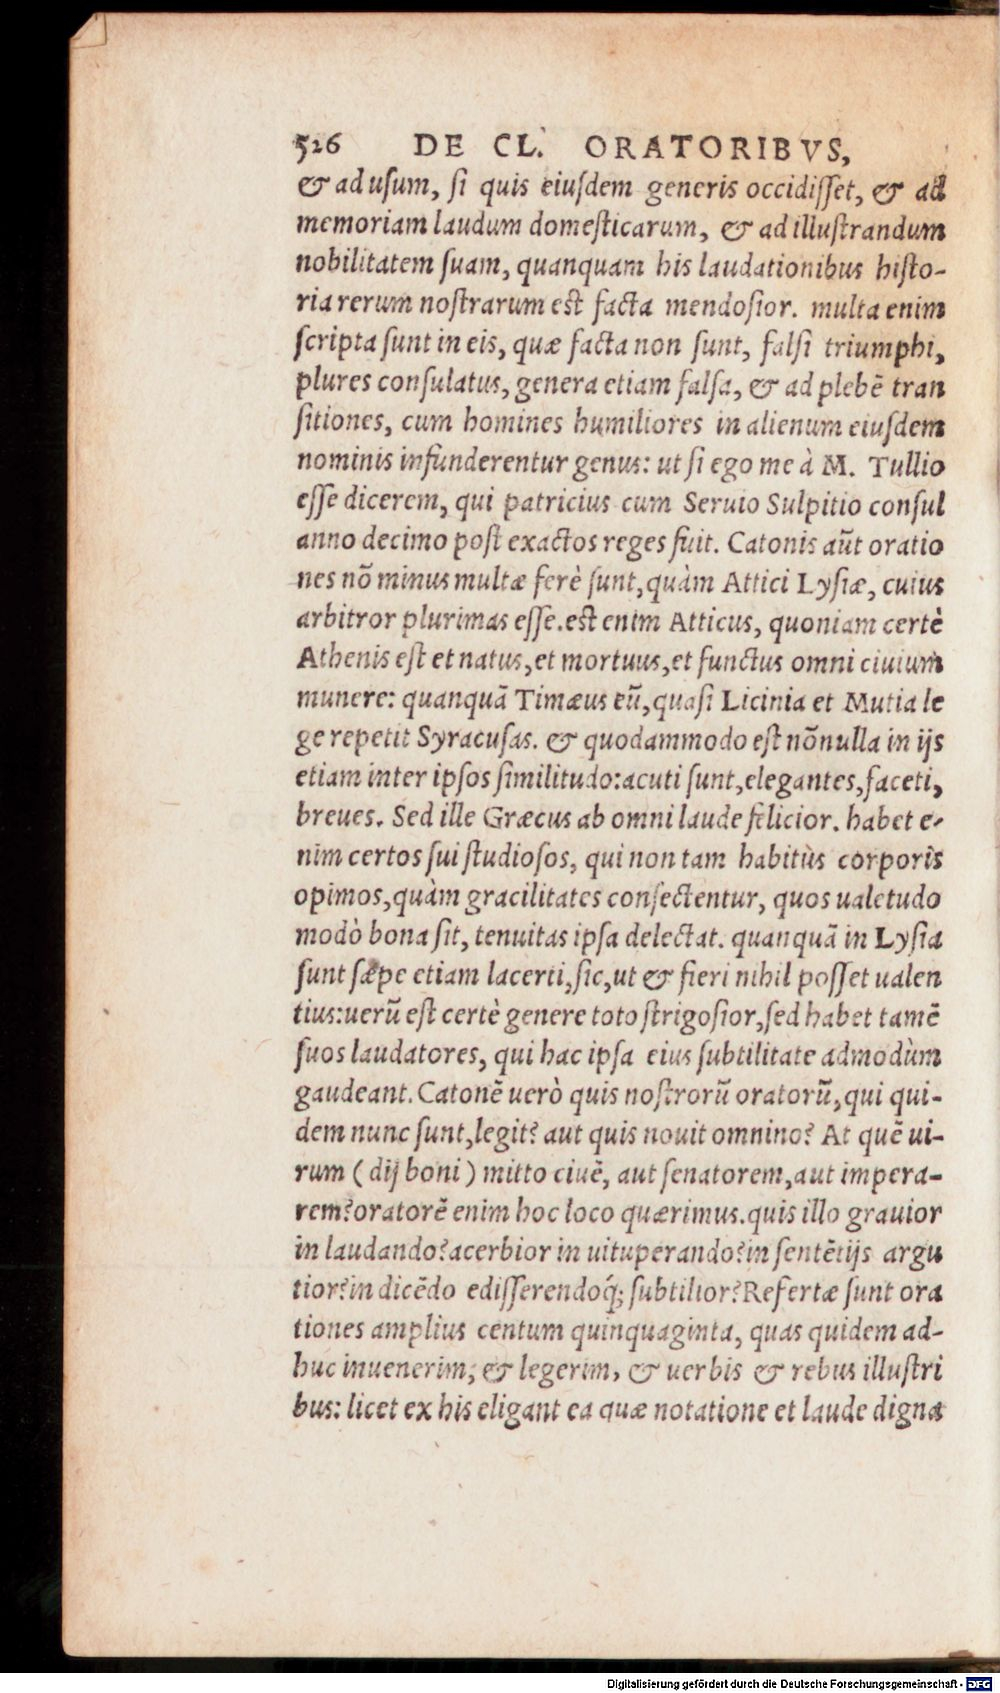 526 DE CL. ORATORIBVS,
& ad usum, si quis eiusdem generis occidisset, & ad
memoriam laudum domesticarum, & ad illustrandum
nobilitatem suam, quanquam his laudationibus histo-
ria rerum nostrarum est facta mendosior. multa enim
scripta sunt in eis, quæ facta non sunt, falsi triumphi,
plures consulatus, genera etiam falsa, & ad plebē tran
sitiones, cum homines humiliores in alienum eiusdem
nominis infunderentur genus: ut si ego me à M. Tullio
esse dicerem, qui patricius cum Seruio Sulpitio consul
anno decimo post exactos reges fuit. Catonis aūt oratio
nes nō minus multæ ferè sunt, quàm Attici Lysiæ, cuius
arbitror plurimas esse. est enim Atticus, quoniam certè
Athenis est et natus, et mortuus, et functus omni ciuium
munere: quanquā Timæus eū, quasi Licinia et Mutia le
ge repetit Syracusas. & quodammodo est nōnulla in ijs
etiam inter ipsos similitudo: acuti sunt, elegantes, faceti,
breues. Sed ille Græcus ab omni laude felicior. habet e-
nim certos sui studiosos, qui non tam habitùs corporis
opimos, quàm gracilitates consectentur, quos ualetudo
modò bona sit, tenuitas ipsa delectat. quanquā in Lysia
sunt sæpe etiam lacerti, sic, ut & fieri nihil posset ualen
tius: uerū est certè genere toto strigosior, sed habet tamē
suos laudatores, qui hac ipsa eius subtilitate admodùm
gaudeant. Catonē uerò quis nostrorū oratorū, qui qui-
dem nunc sunt, legit? aut quis nouit omnino? At quē ui-
rum (dij boni) mitto ciuē, aut senatorem, aut impera-
rem? oratorē enim hoc loco quærimus. quis illo grauior
in laudando? acerbior in uituperando? in sentētijs argu
tior? in dicēdo edisserendoq́; subtilior? Refertæ sunt ora
tiones amplius centum quinquaginta, quas quidem ad-
huc inuenerim, & legerim, & uerbis & rebus illustri
bus: licet ex his eligant ea quæ notatione et laude digna
Digitalisierung gefördert durch die Deutsche Forschungsgemeinschaft - DFG